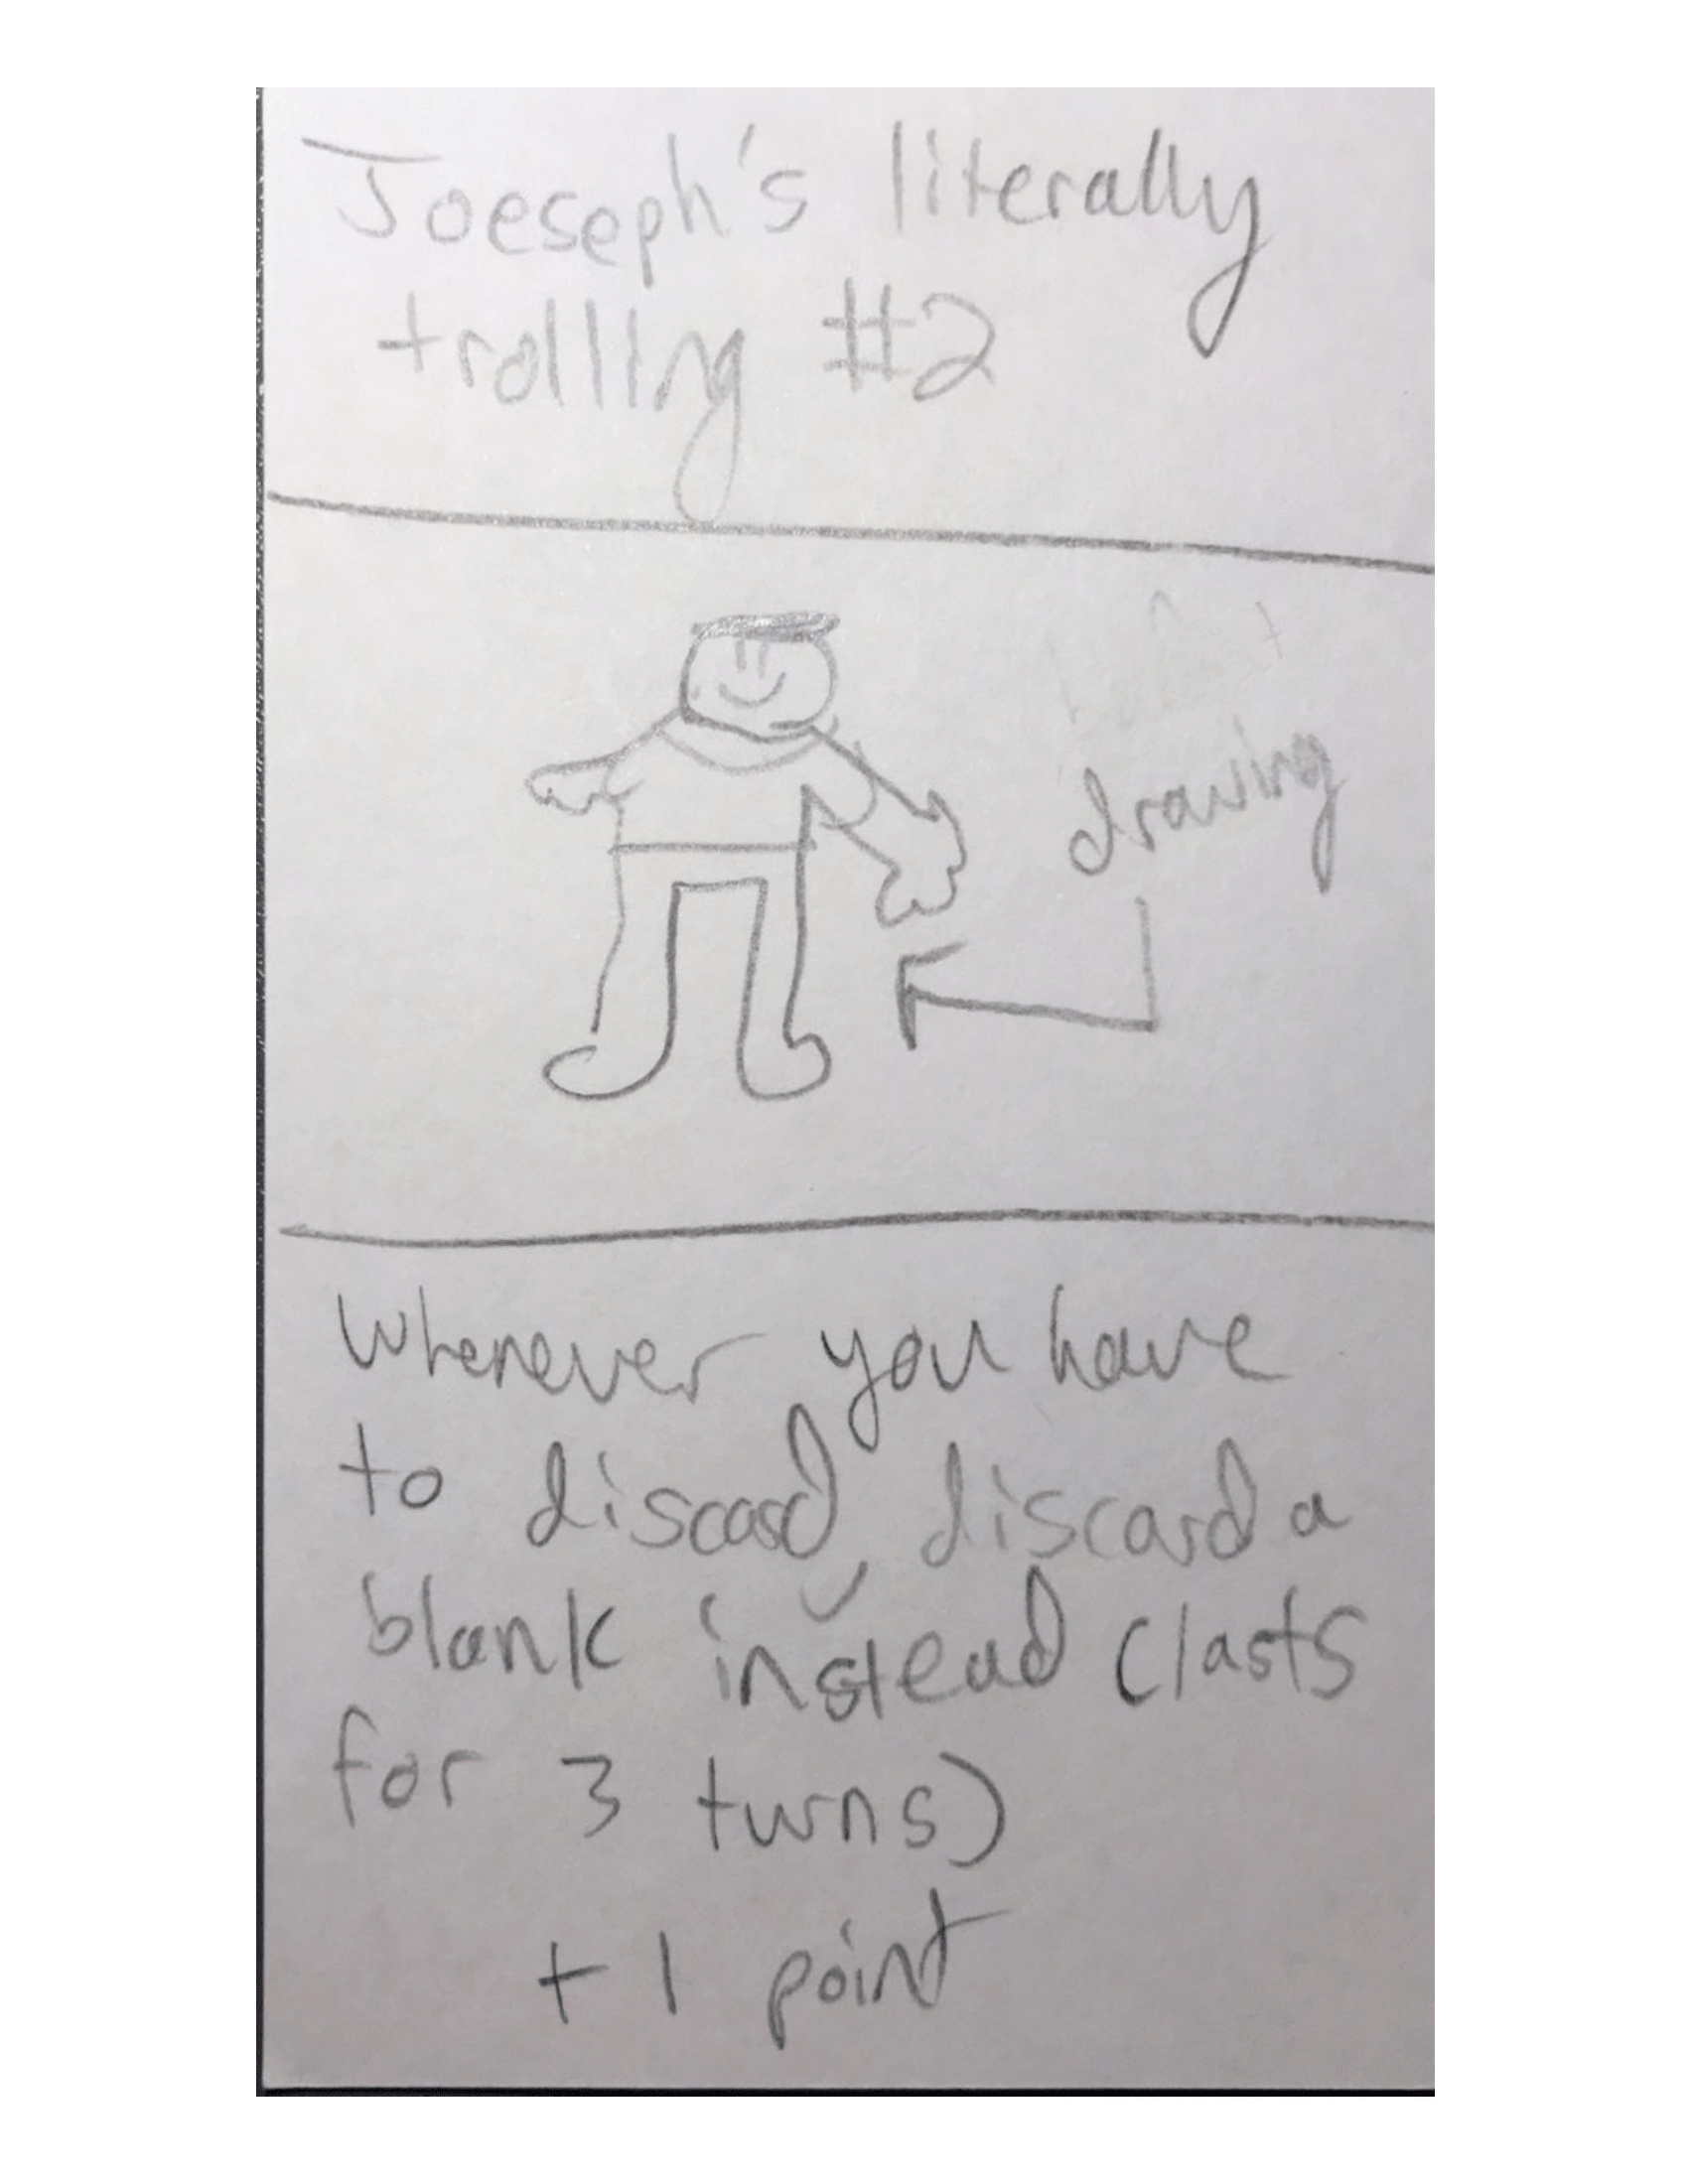 Joeseph's literally
trolling #2
drawing
Whenever you have
to discard, discard a
blank instead (lasts
for 3 turns)
+1 point